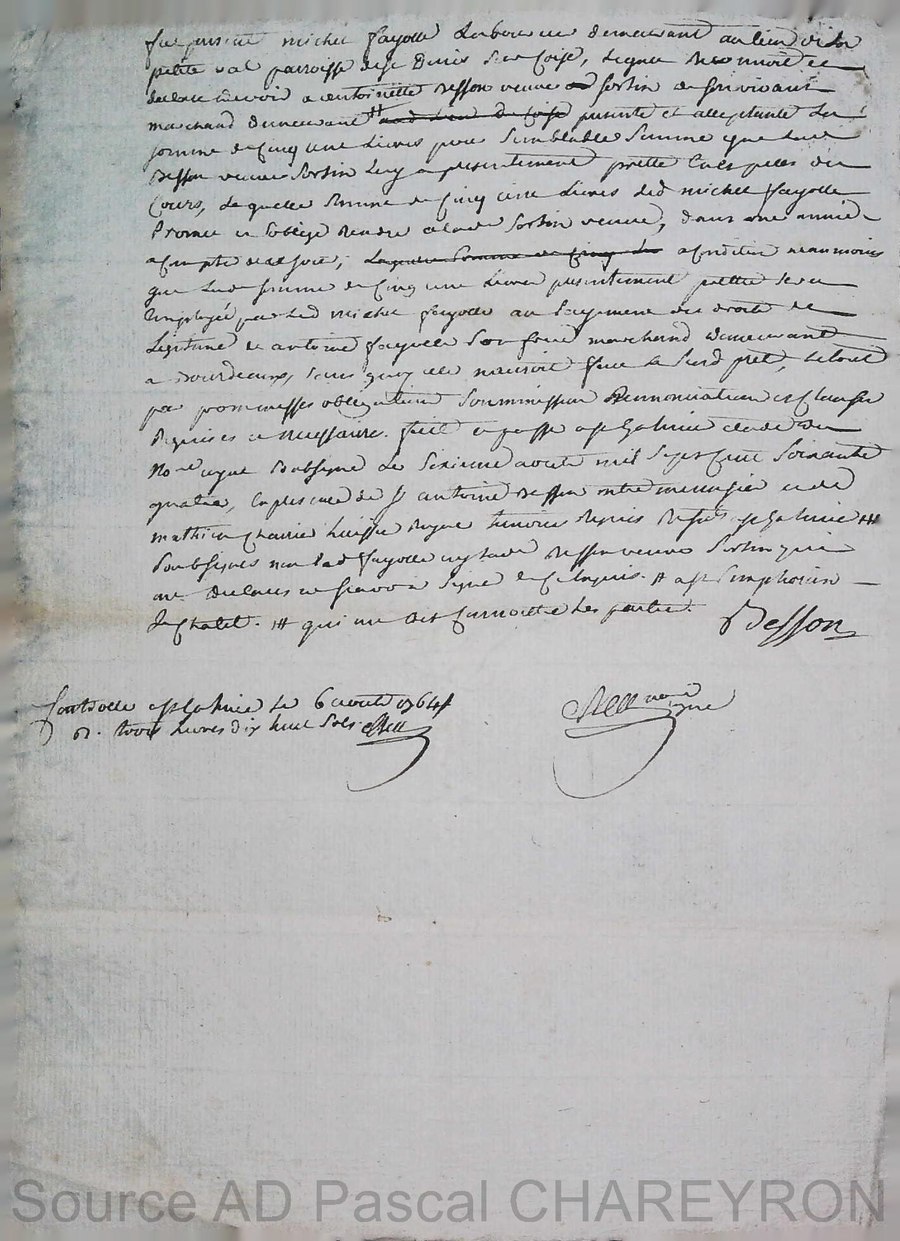 fut present michel fayolle Laboureur demeurant au lieu de la
petite val parroisse de st Denis Sur Coise, Lequel reconnoit et
declare devoir a antoinette Besson veuve Sortin de son vivant
marchand demeurant # aud Lieu de Coise presente et acceptante La
somme de Cinq cent Livres pour Semblable Somme que lad
Besson veuve Sortin Luy a presentement prettée En Especes du
Cours, Laquelle Somme de Cinq cent Livres led michel fayolle
Promet et soblige rendre a lad Sortin veuve, dans une année
a Compter de ce jour, Laquelle Somme de Cinq a Condition neanmoins
que Lad somme de Cinq cent Livres presentement prettée Sera
Employée par led michel fayolle au payement des droits de
Legitime de antoine fayolle Son frere marchand demeurant
a Bourdeaux, Sans quoy elle nauroit fait le Susd pret, le tout
par promesses obligations Soumissions Renonciations et Clauses
Requises et necessaires. fait et passé a st Galmier etude du
No.re royal Soubsigné Le Sixieme aoust mil Sept Cent Soixante
quatre, En presence de Sr antoine Besson mtre menuisier et de
mathieu Charrier huissier Royal temoins Requis Residts a st Galmier ###
Soubsignés non led fayolle ny lad Besson veuve Sortin qui
ont declaré ne sçavoir Signé de Ce Enquis. # a st Simphorien
Le Chatel. ### qui ont dit Connoitre les parties.
Besson
Controllé a st Galmier Le 6 aoust 1764
R. trois Livres dix huit Sols
nore
royal